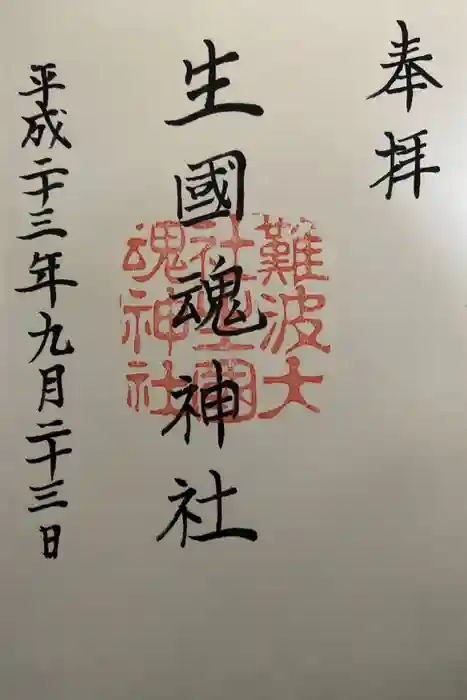 奉拝
難波大
社生國
魂神社
生國魂神社
平成二十三年九月二十三日